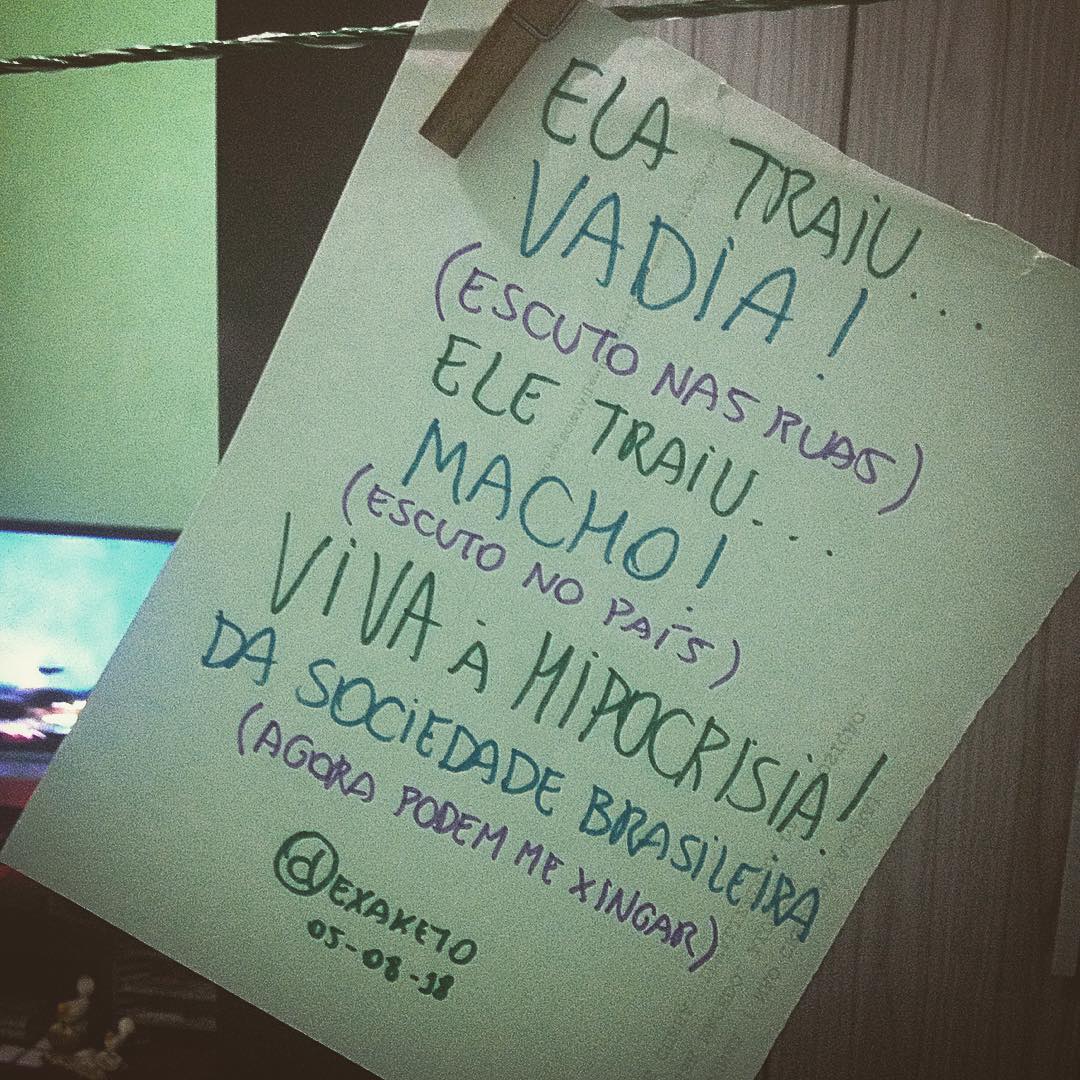 ELA TRAiU...
VADiA!
(ESCUTO NAS RUAS)
ELE TRAiU...
MACHO!
(ESCUTO NO PAÍS)
ViVA À HiPOCRISiA!
DA SOCiEDADE BRASiLEiRA
(AGORA PODEM ME XiNGAR)
@EXAKETO
05-08-18